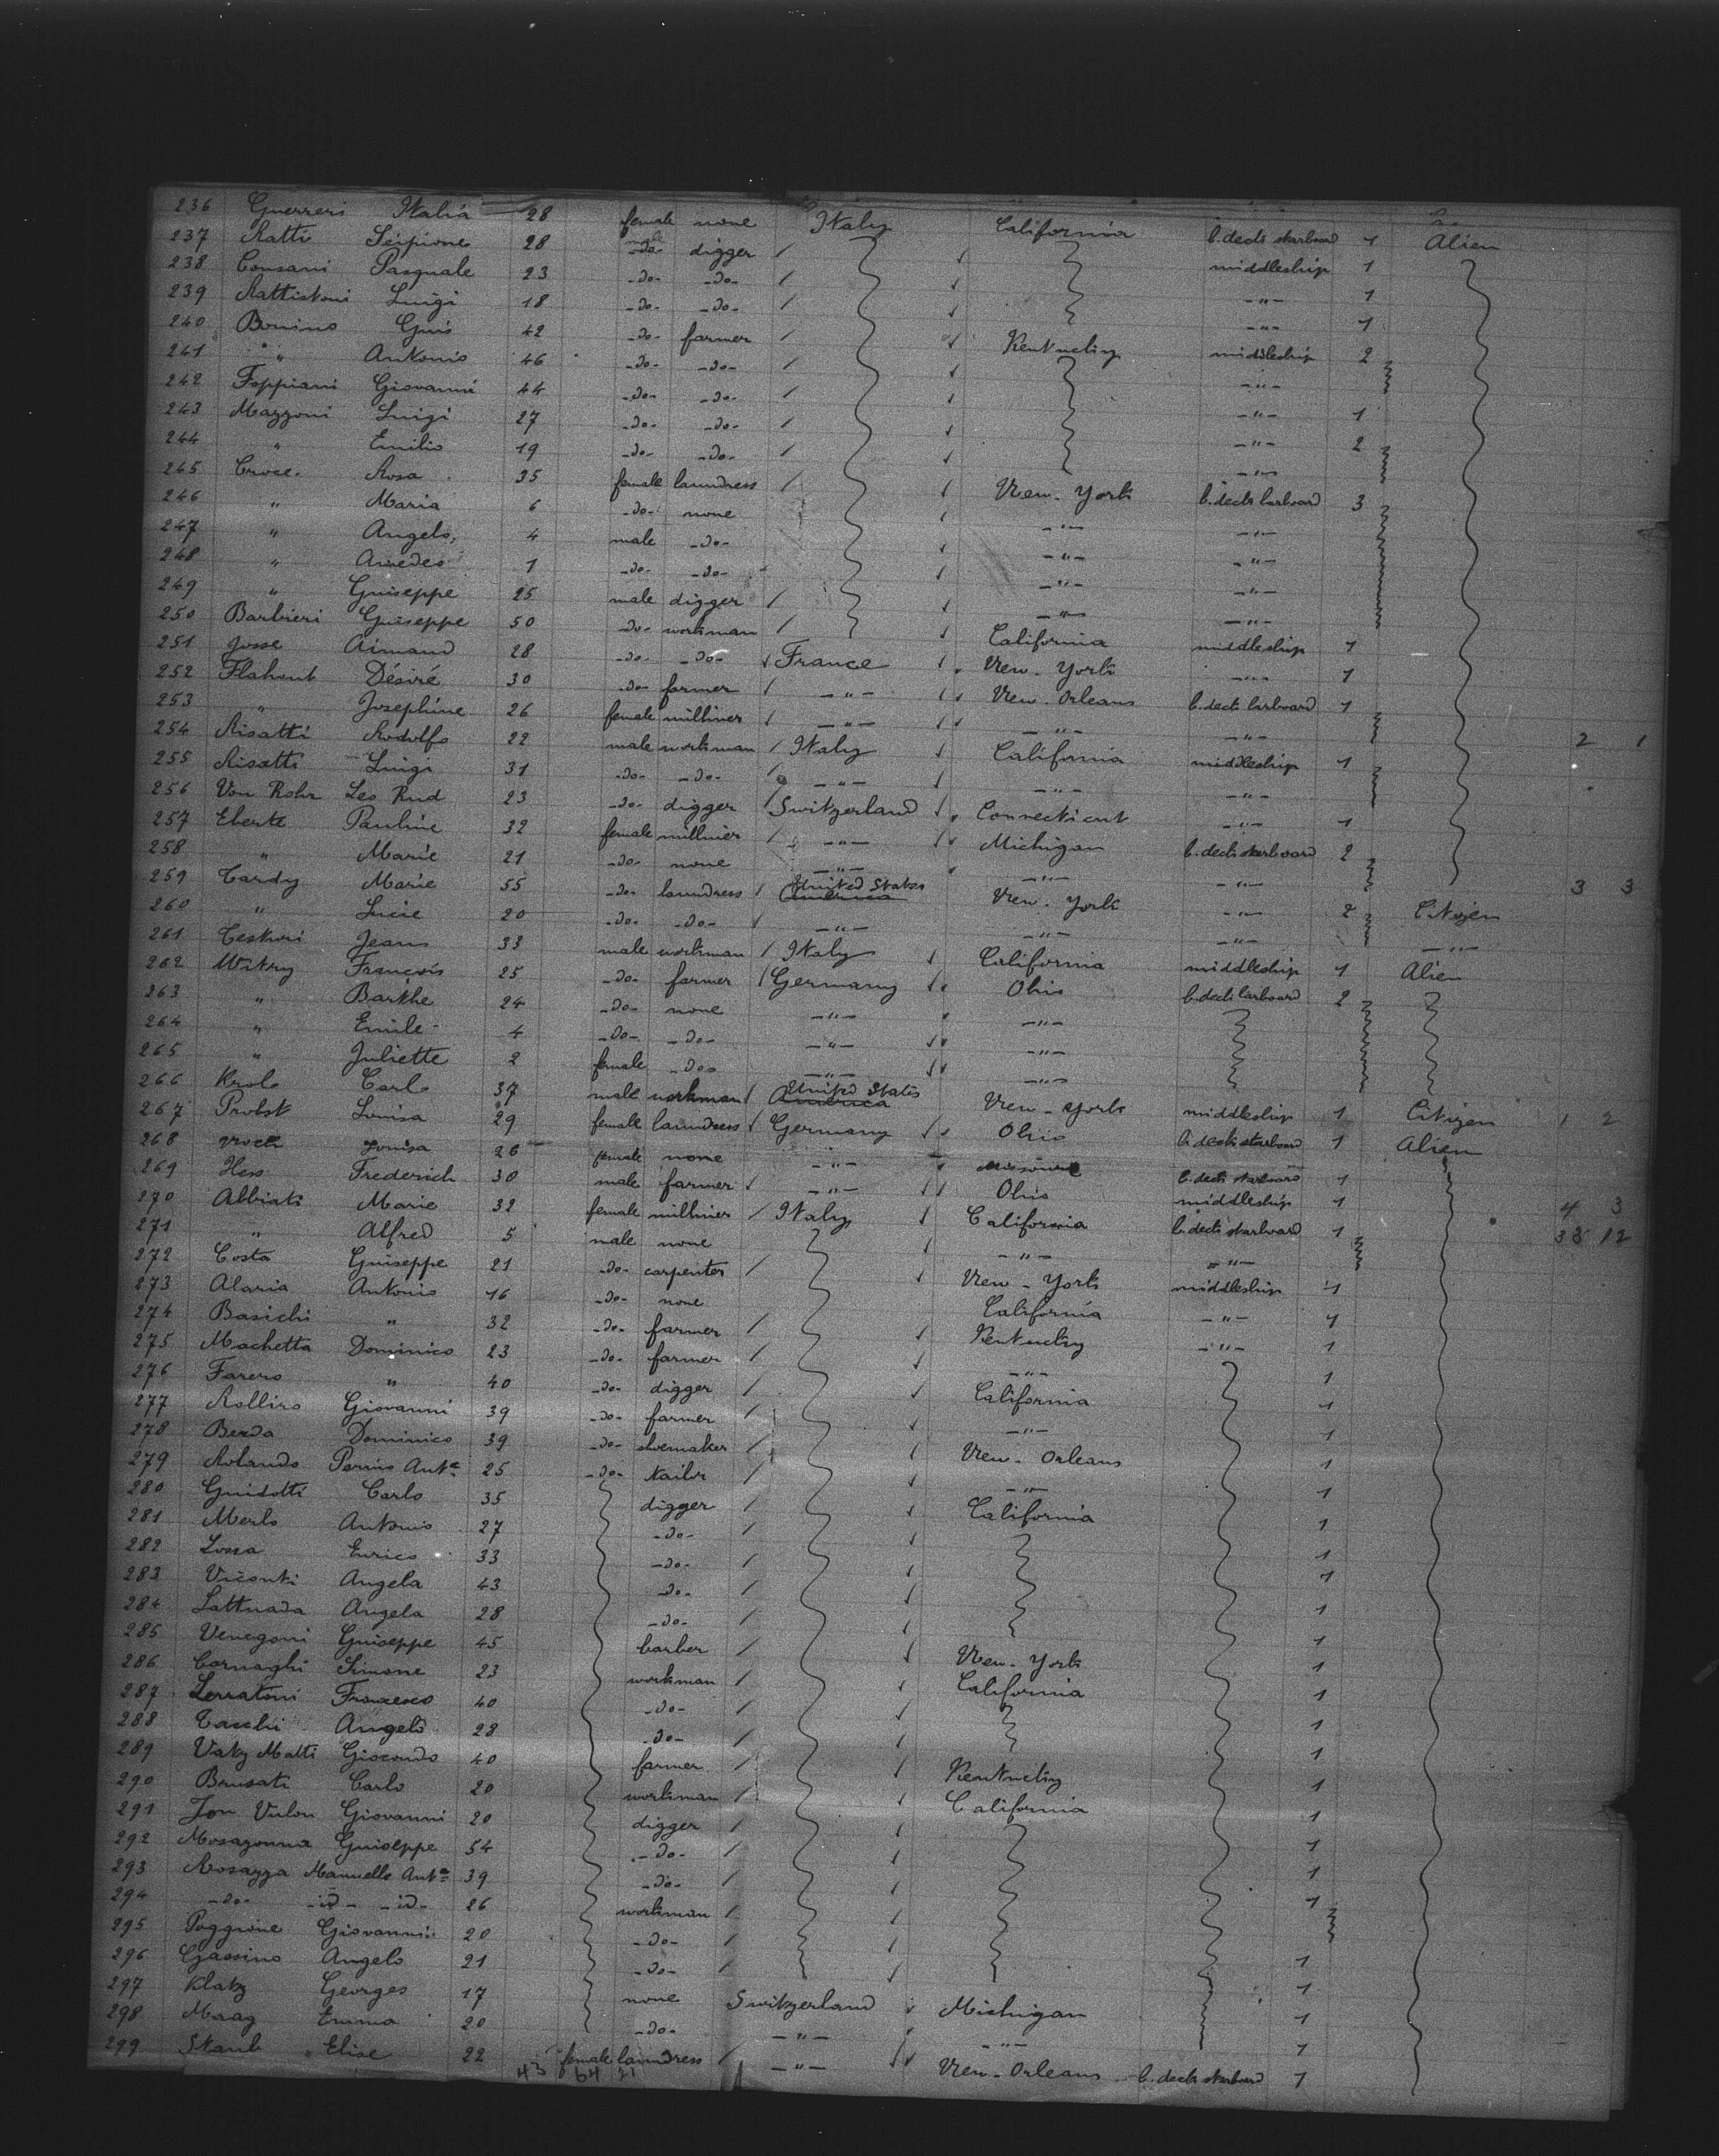 236 Guerreri Italia 28 female none Italy California b. deck starboard 1 Alien
237 Ratti Scipione 28 male -do- digger / middleship 1
238 Consani Pasquale 23 -do- -do- / -"- 1
239 Luigi 18 -do- -do- / -"- 1
240 Bonino Gius 42 -do- farmer / Kentucky middleship 2
241 " Antonio 46 -do- -do- / -"-
242 Foppiani Giovanni 44 -do- -do- / -"- 1
243 Mazzoni Luigi 27 -do- -do- / -"- 2
244 " Emilio 19 -do- -do- / -"-
245 Croce Rosa 35 female laundress / New-York b. deck larboard 3
246 " Maria 6 -do- none -"- -"-
247 " Angelo, 4 male -do- -"- -"-
248 " Amedeo 1 -do- -do- -"- -"-
249 " Guiseppe 25 male digger / -"- -"-
250 Barbieri Guiseppe 50 -do- workman / California middleship 1
251 Josse Aimand 28 -do- -do- France New-York -"- 1
252 Flahout Désiré 30 -do- farmer / -"- New-Orleans b. deck larboard 1
253 " Josephine 26 female milliner / -"- -"- -"- 2 1
254 Risatti Rodolfo 22 male workman / Italy California middleship 1
255 Risatti Luigi 31 -do- -do- / -"- -"- -"-
256 Von Rohr Leo Rud 23 -do- digger / Switzerland Connecticut -"- 1
257 Eberte Pauline 32 female milliner / -"- Michigan b. deck starboard 2
258 " Marie 21 -do- none -"- -"- -"- 3 3
259 Cardy Marie 55 -do- laundress / United States America New-York -"- 2 Citizen
260 " Lucie 20 -do- -do- / -"- -"- -"- -"-
261 Jean 33 male workman / Italy California middleship 1 Alien
262 Witry François 25 -do- farmer / Germany Ohio b. deck larboard 2
263 " Barthe 24 -do- none -"- -"-
264 " Emile 4 -do- -do- -"- -"-
265 " Juliette 2 female -do- -"- -"-
266 Krolo Carlo 37 male workman / United States America New-York middleship 1 Citizen 1 2
267 Probst Louisa 29 female laundress / Germany Ohio b. deck starboard 1 Alien
268 Louisa 26 female none -"- b. deck starboard 1
269 Hess Frederich 30 male farmer / -"- Ohio middleship 1 4 3
270 Abbiati Marie 32 female milliner / Italy California b. deck starboard 1 38 12
271 " Alfred 5 male none -"- -"-
272 Costa Guiseppe 21 -do- carpenter / New-York middleship 1
273 Alaria Antonio 16 -do- none California -"- 1
274 Basichi " 32 -do- farmer / Kentucky -"- 1
275 Machetta Dominico 23 -do- farmer / -"- 1
276 Farero " 40 -do- digger / California 1
277 Rolliro Giovanni 39 -do- farmer / -"- 1
278 Berda Dominico 39 -do- shoemaker / New-Orleans 1
279 Rolando Perino Ant.º 25 -do- tailor / -"- 1
280 Guidotti Carlo 35 digger / California 1
281 Merlo Antonio 27 -do- / 1
282 Lossa Enrico 33 -do- / 1
283 Viconti Angela 43 -do- / 1
284 Lattuada Angela 28 -do- / 1
285 Venegoni Guiseppe 45 barber / New-York 1
286 Cornaghi Simone 23 workman / California 1
287 Francesco 40 -do- / 1
288 Tacchi Angelo 28 -do- / 1
289 Vaty Matti Giocondo 40 farmer / Kentucky 1
290 Brusati Carlo 20 workman / California 1
291 Jon Vulon Giovanni 20 digger / 1
292 Mosazonna Guiseppe 54 -do- / 1
293 Rosazza Manuello Ant.º 39 -do- / 1
294 -do- -id- -id- 26 workman /
295 Poggione Giovanni 20 -do- / 1
296 Gassino Angelo 21 -do- / 1
297 Klatz Georges 17 none Switzerland Michigan 1
298 Maag Emma 20 -do- -"- -"- 1
299 Staub Elise 22 female laundress / -"- New-Orleans b. deck starboard 1
43 64 21